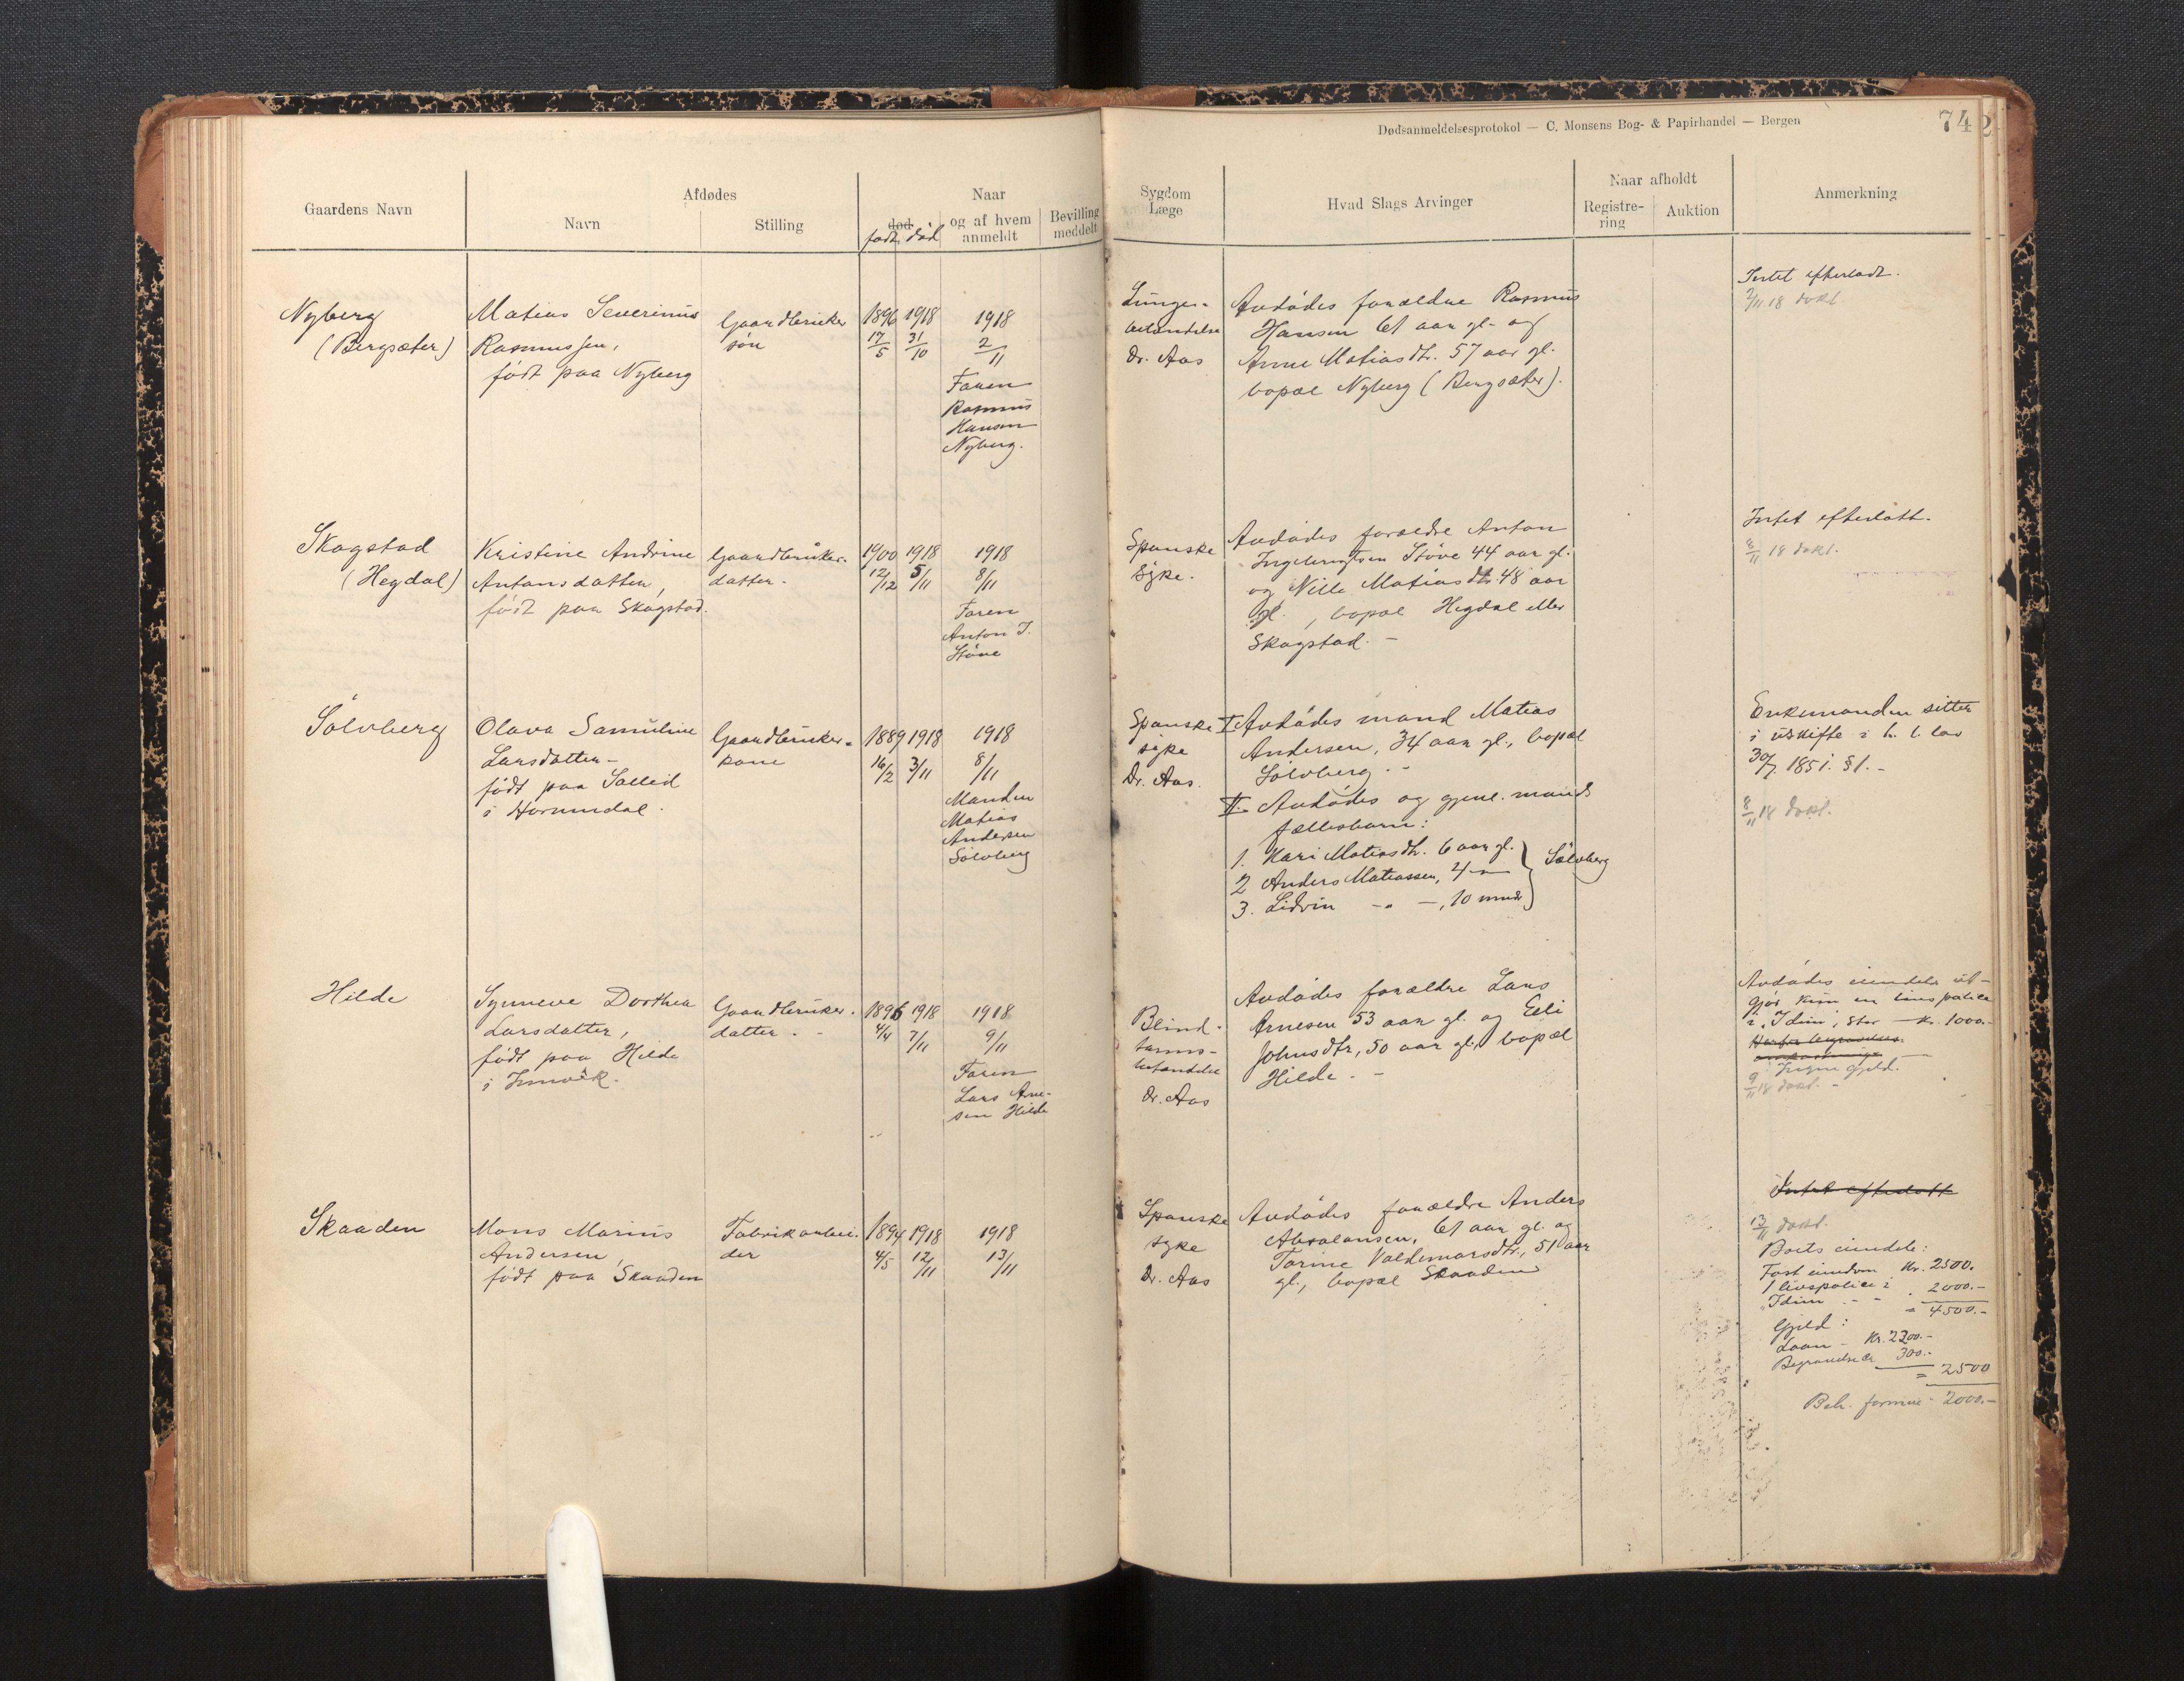 Dødsanmeldelsesprotokol — C. Monsens Bog- & Papirhandel — Bergen
74
2
Gaardens Navn
Afdødes
Navn
Stilling
død
født død
Naar
og af hvem
anmeldt
Bevilling
meddelt
Sygdom
Læge
Hvad Slags Arvinger
Naar afholdt
Registre-
ring
Auktion
Anmerkning
Nyberg
(Bergsæter)
Matias Severinus
Rasmussen,
født paa Nyberg
Gaardbruker
søn
1896 1918
17/5 31/10
1918
2/11
Faren
Rasmus
Hansen
Nyberg.
Lunge-
betændelse
Dr. Aas
Avdødes forældre Rasmus
Hansen 61 aar gl. og
Anne Matiasdtr. 57 aar gl.
bopæl Nyberg (Bergsæter).
Intet efterladt.
2/11.18 dokl.
Skogstad
(Hegdal)
Kristine Andrine
Antonsdatter,
født paa Skogstad.
Gaardbruker-
datter.
1900 1918
12/12 5/11
1918
8/11
Faren
Anton I.
Støve
Spanske
syke.
Avdødes forældre Anton
Ingebrigtsen Støve 44 aar gl.
og Nille Matiasdtr. 48 aar
gl., bopæl Hegdal eller
Skogstad. –
Intet efterlatt.
8/11 18 dokl.
Sølvberg
Olava Samuline
Larsdatter –
født paa
i Hornindal.
Gaardbruker-
kone
1889 1918
16/2 3/11
1918
8/11
Manden
Matias
Andersen
Sølvberg
Spanske
syke
Dr. Aas.
I Avdødes mand Matias
Andersen, 34 aar gl., bopæl
Sølvberg. –
II. Avdødes og gjenl. mands
fællesbarn:
1. Kari Matiasdtr. 6 aar gl.
2 Anders Matiassen, 4 – "
3. Lidvin – " –, 10 mndr
Sølvberg
Enkemanden sitter
i uskifte i h. t. lov
30/7 1851. §1. –
8/11 18 dokl.
Hilde
Synneve Dorthea
Larsdatter,
født paa Hilde
i Innvik.
Gaardbruker.
datter. –
1896 1918
4/4 7/11
1918
9/11
Faren
Lars Arne-
sen Hilde
Blind-
tarms-
betændelse
Dr. Aas
Avdødes forældre Lars
Arnesen 53 aar gl. og Eli
Johnsdtr, 50 aar gl., bopæl
Hilde. –
Avdødes eiendele ut-
gjør kun en livspolice
i "Idun", stor – Kr. 1000.–
Herfra begravelses-
omkostninger
Ingen gjeld.
9/11 18 dokl. –
Skaaden
Mons Marius
Andersen,
født paa Skaaden
Fabrikarbei-
der
1894 1918
4/5 12/11
1918
13/11
Spanske
syke
Dr. Aas
Avdødes forældre Anders
Absalonsen, 61 aar gl. og
Torine Valdemarsdtr., 51 aar
gl., bopæl Skaaden
Intet efterlatt
13/11 dokl.
Boets eiendele:
Fast eiendom Kr. 2500.
1 livspolice i
"Idun – " . 2000.–
= 4500.–
Gjeld:
Laan – Kr. 2200.–
300.–
= 2500
Beh. formue – 2000.–